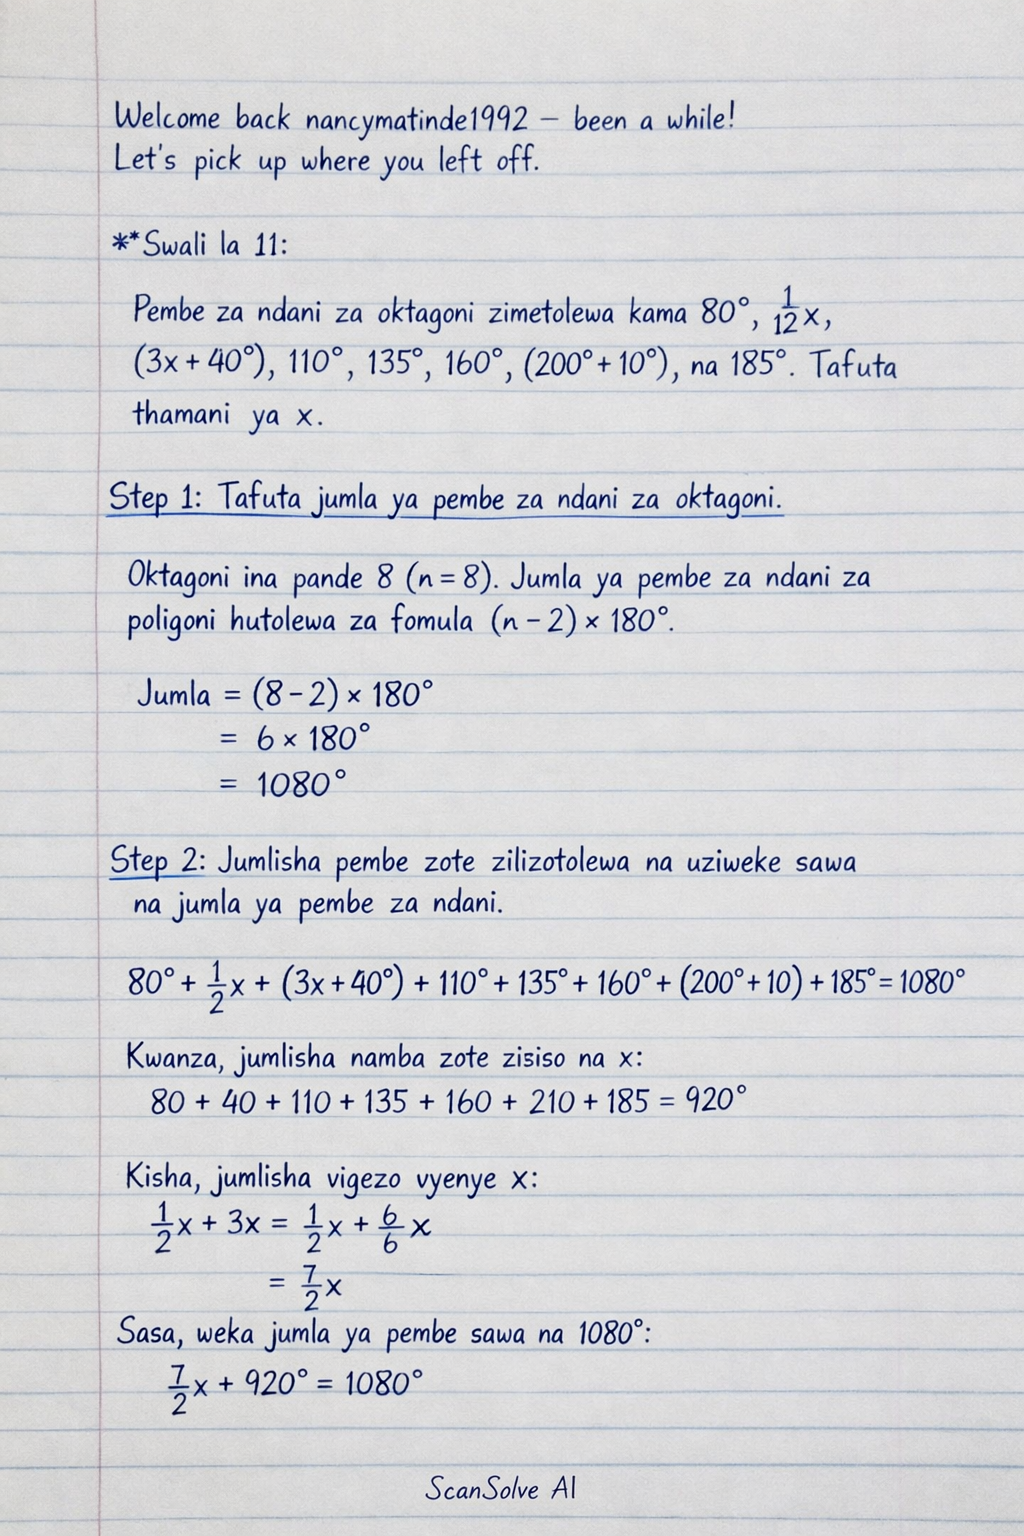 Welcome back nancymatinde1992 – been a while!
Let's pick up where you left off.
**Swali la 11:
Pembe za ndani za oktagoni zimetolewa kama 80°, 1/12 x,
(3x + 40°), 110°, 135°, 160°, (200° + 10°), na 185°. Tafuta
thamani ya x.
Step 1: Tafuta jumla ya pembe za ndani za oktagoni.
Oktagoni ina pande 8 (n = 8). Jumla ya pembe za ndani za
poligoni hutolewa za fomula (n - 2) × 180°.
Jumla = (8 - 2) × 180°
= 6 × 180°
= 1080°
Step 2: Jumlisha pembe zote zilizotolewa na uziweke sawa
na jumla ya pembe za ndani.
80° + 1/2 x + (3x + 40°) + 110° + 135° + 160° + (200° + 10) + 185° = 1080°
Kwanza, jumlisha namba zote zisiso na x:
80 + 40 + 110 + 135 + 160 + 210 + 185 = 920°
Kisha, jumlisha vigezo vyenye x:
1/2 x + 3x = 1/2 x + 6/6 x
= 7/2 x
Sasa, weka jumla ya pembe sawa na 1080°:
7/2 x + 920° = 1080°
ScanSolve AI